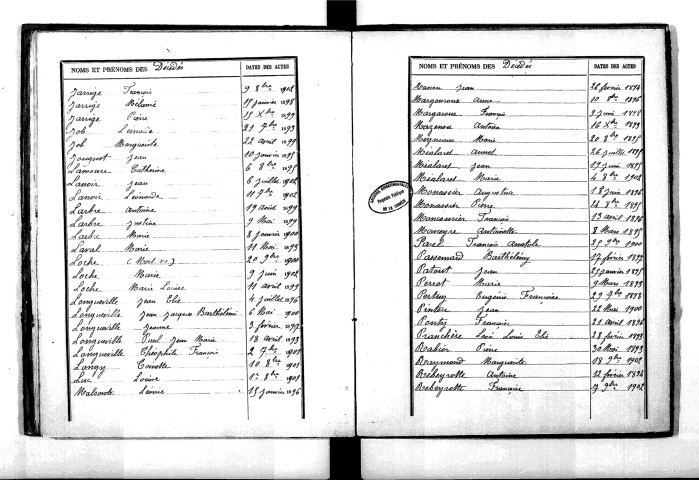 NOMS ET PRÉNOMS DES Décédés DATES DES ACTES
Jarrige François 9 8bre 1902
Jarrige Mélanie 15 janvier 1898
Jarrige Pierre 15 Xbre 1899
Job Léonarde 21 7bre 1893
Job Marguerite 22 avril 1899
Jouquet Jean 10 janvier 1895
Lamoure Catherine 6 8bre 1895
Lanoir Jean 6 juillet 1902
Lanoir Léonarde 11 7bre 1902
Larbre Antoine 19 avril 1899
Larbre Justine 9 Mai 1899
Larbre Marie 8 janvier 1900
Laval Marie 11 Mai 1893
Loche (Mort né) 20 9bre 1900
Loche Marie 9 juin 1902
Loche Marie Louise 11 avril 1899
Longueville Jean Elie 4 juillet 1896
Longueville Jean Jacques Barthélémi 6 Mai 1900
Longueville Jeanne 3 février 1897
Longueville Paul Jean Marie 18 avril 1893
Longueville Théophile François 2 7bre 1901
Longy Toinette 10 8bre 1901
Luc Louise 1er 8bre 1901
Malmonte Léonie 15 janvier 1896
NOMS ET PRÉNOMS DES Décédés DATES DES ACTES
Manou Jean 26 février 1894
Margouroux Anne 10 8bre 1896
Margaroux François 3 juin 1898
Mazenou Antoine 16 Xbre 1899
Meyrieux Marie 20 8bre 1895
Mialaret Annet 26 juillet 1895
Mialaret Jean 19 juin 1895
Mialaret Marie 4 8bre 1902
Monassier Augustine 18 juin 1896
Monassier Pierre 14 8bre 1895
Monceaurier François 13 avril 1896
Mouneyre Antoinette 8 Mars 1895
Parel François Anatole 25 9bre 1900
Passemard Barthélémy 17 février 1897
Patout Jean 23 janvier 1895
Perrot Marie 9 Mars 1895
Pertuy Eugénie Françoise 29 7bre 1898
Pinturé Jean 22 Mai 1900
Ponty Françoise 21 avril 1896
Pranchère Léon Louis Elie 28 février 1893
Rabier Pierre 30 Mai 1893
Raymond Marguerite 18 9bre 1902
Rebeyrotte Antoine 12 février 1894
Rebeyrotte Françoise 17 9bre 1902
ARCHIVES DÉPARTEMENTALES
DE LA CORRÈZE